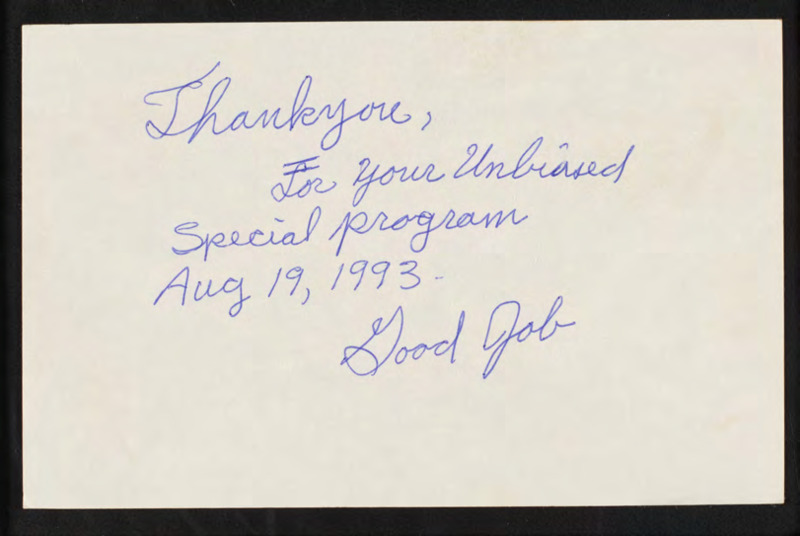 Thankyou,
For your Unbiased
Special program
Aug 19, 1993.
Good Job